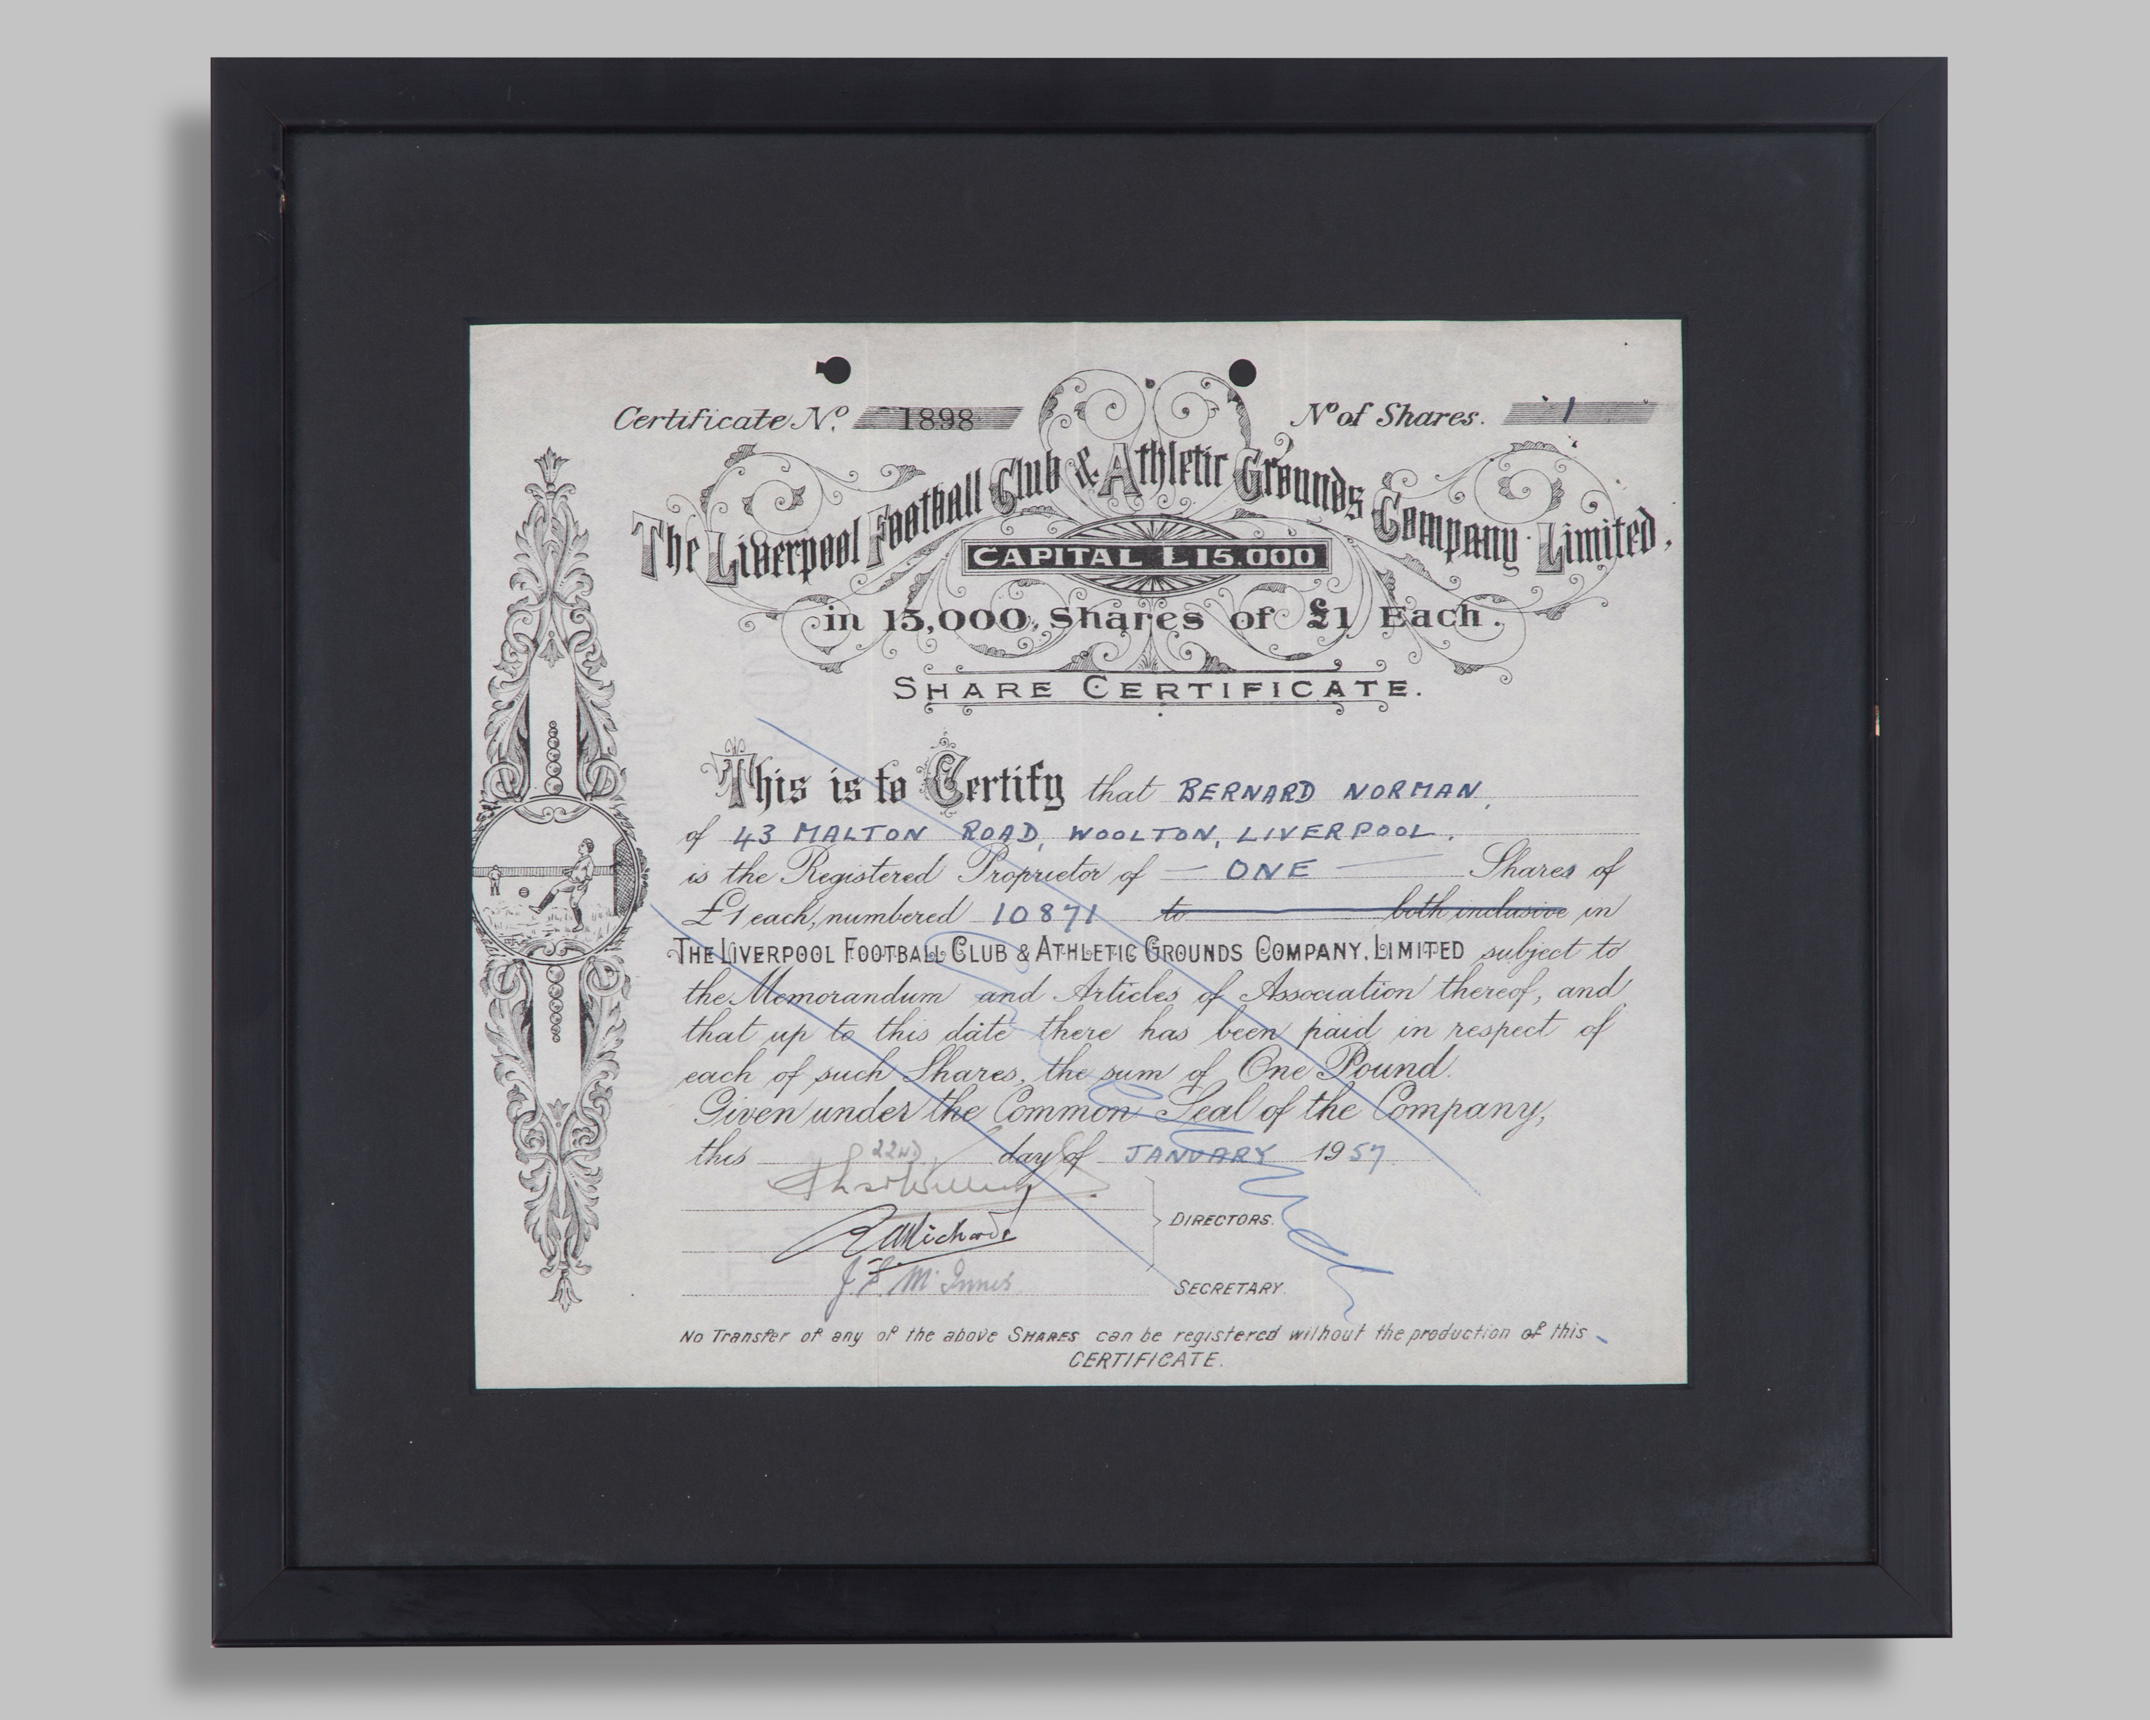 Certificate No. 1898
No of Shares. 1
The Liverpool Football Club & Athletic Grounds Company Limited,
CAPITAL £15.000
in 15,000 Shares of £1 Each.
SHARE CERTIFICATE.
This is to Certify that BERNARD NORMAN,
of 43 MALTON ROAD, WOOLTON, LIVERPOOL.
is the Registered Proprietor of — ONE — Shares of
£1 each, numbered 10871 to both inclusive in
THE LIVERPOOL FOOTBALL CLUB & ATHLETIC GROUNDS COMPANY, LIMITED subject to
the Memorandum and Articles of Association thereof, and
that up to this date there has been paid in respect of
each of such Shares, the sum of One Pound.
Given under the Common Seal of the Company,
this 22ND day of JANUARY 1957
R A Richards
DIRECTORS.
J. F. McInnes
SECRETARY.
No Transfer of any of the above SHARES can be registered without the production of this
CERTIFICATE.